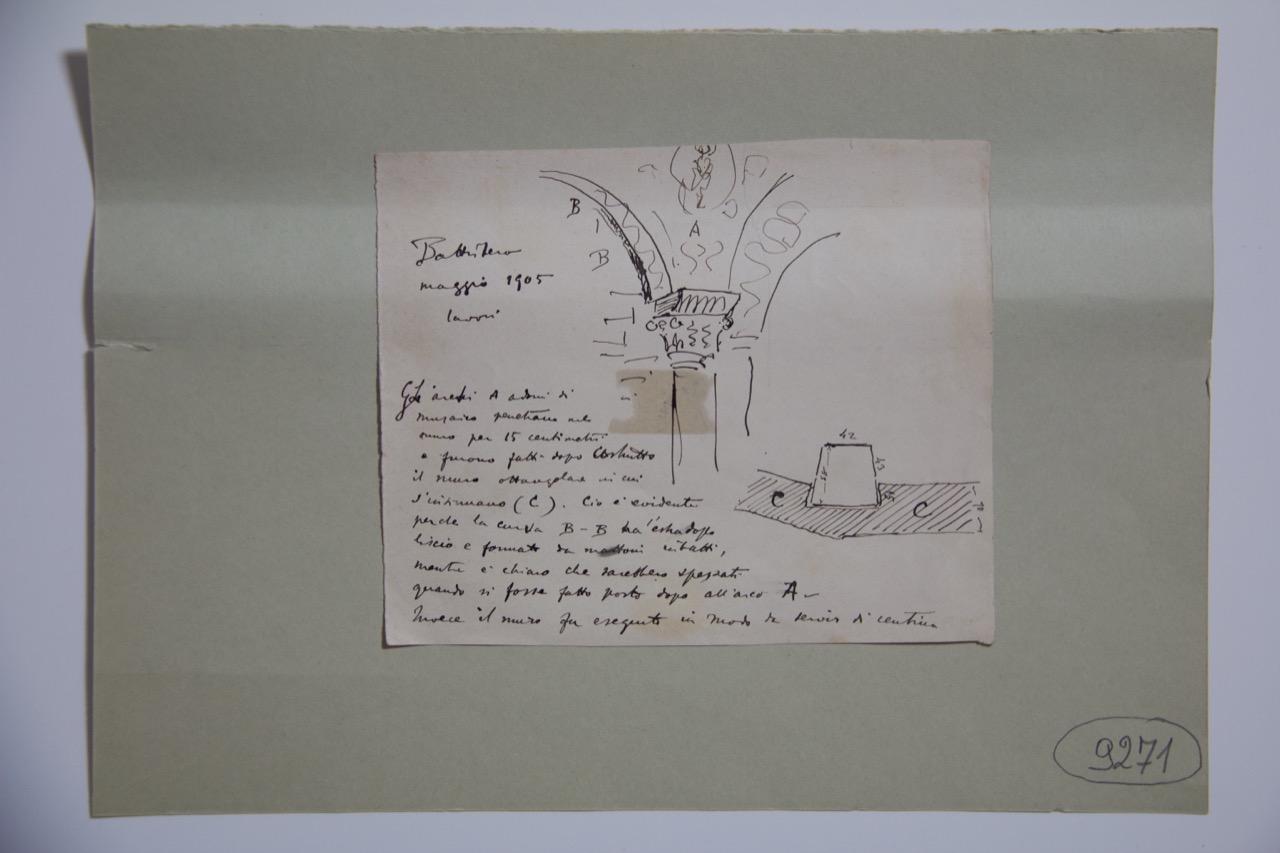 B
A
B
Battistero
maggio 1905
lavori
Gli archi A adorni di
musaico penetrano nel
muro per 15 centimetri
e furono fatti dopo costrutto
il muro ottangolare in cui
s'insinuano (C). Ciò è evidente
perchè la curva B-B ha l'estradosso
liscio e formato da mattoni
mentre è chiaro che sarebbero spezzati
quando si fosse fatto posto dopo all'arco A-
Invece il muro fu eseguito in modo da servir di centina
42
43
15
C
C
9271